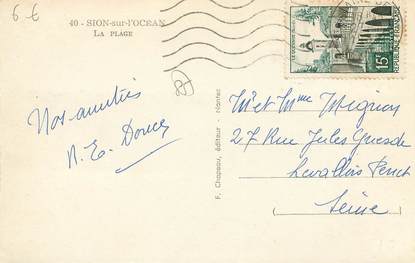 6 €
40 - SION-sur-l'OCÉAN
LA PLAGE
15F
Nos amitiés
R. E. Doucy
F. Chapeau, éditeur - Nantes
Mr et Mme Mignon
27 Rue Jules Guesde
Levallois Perret
Seine